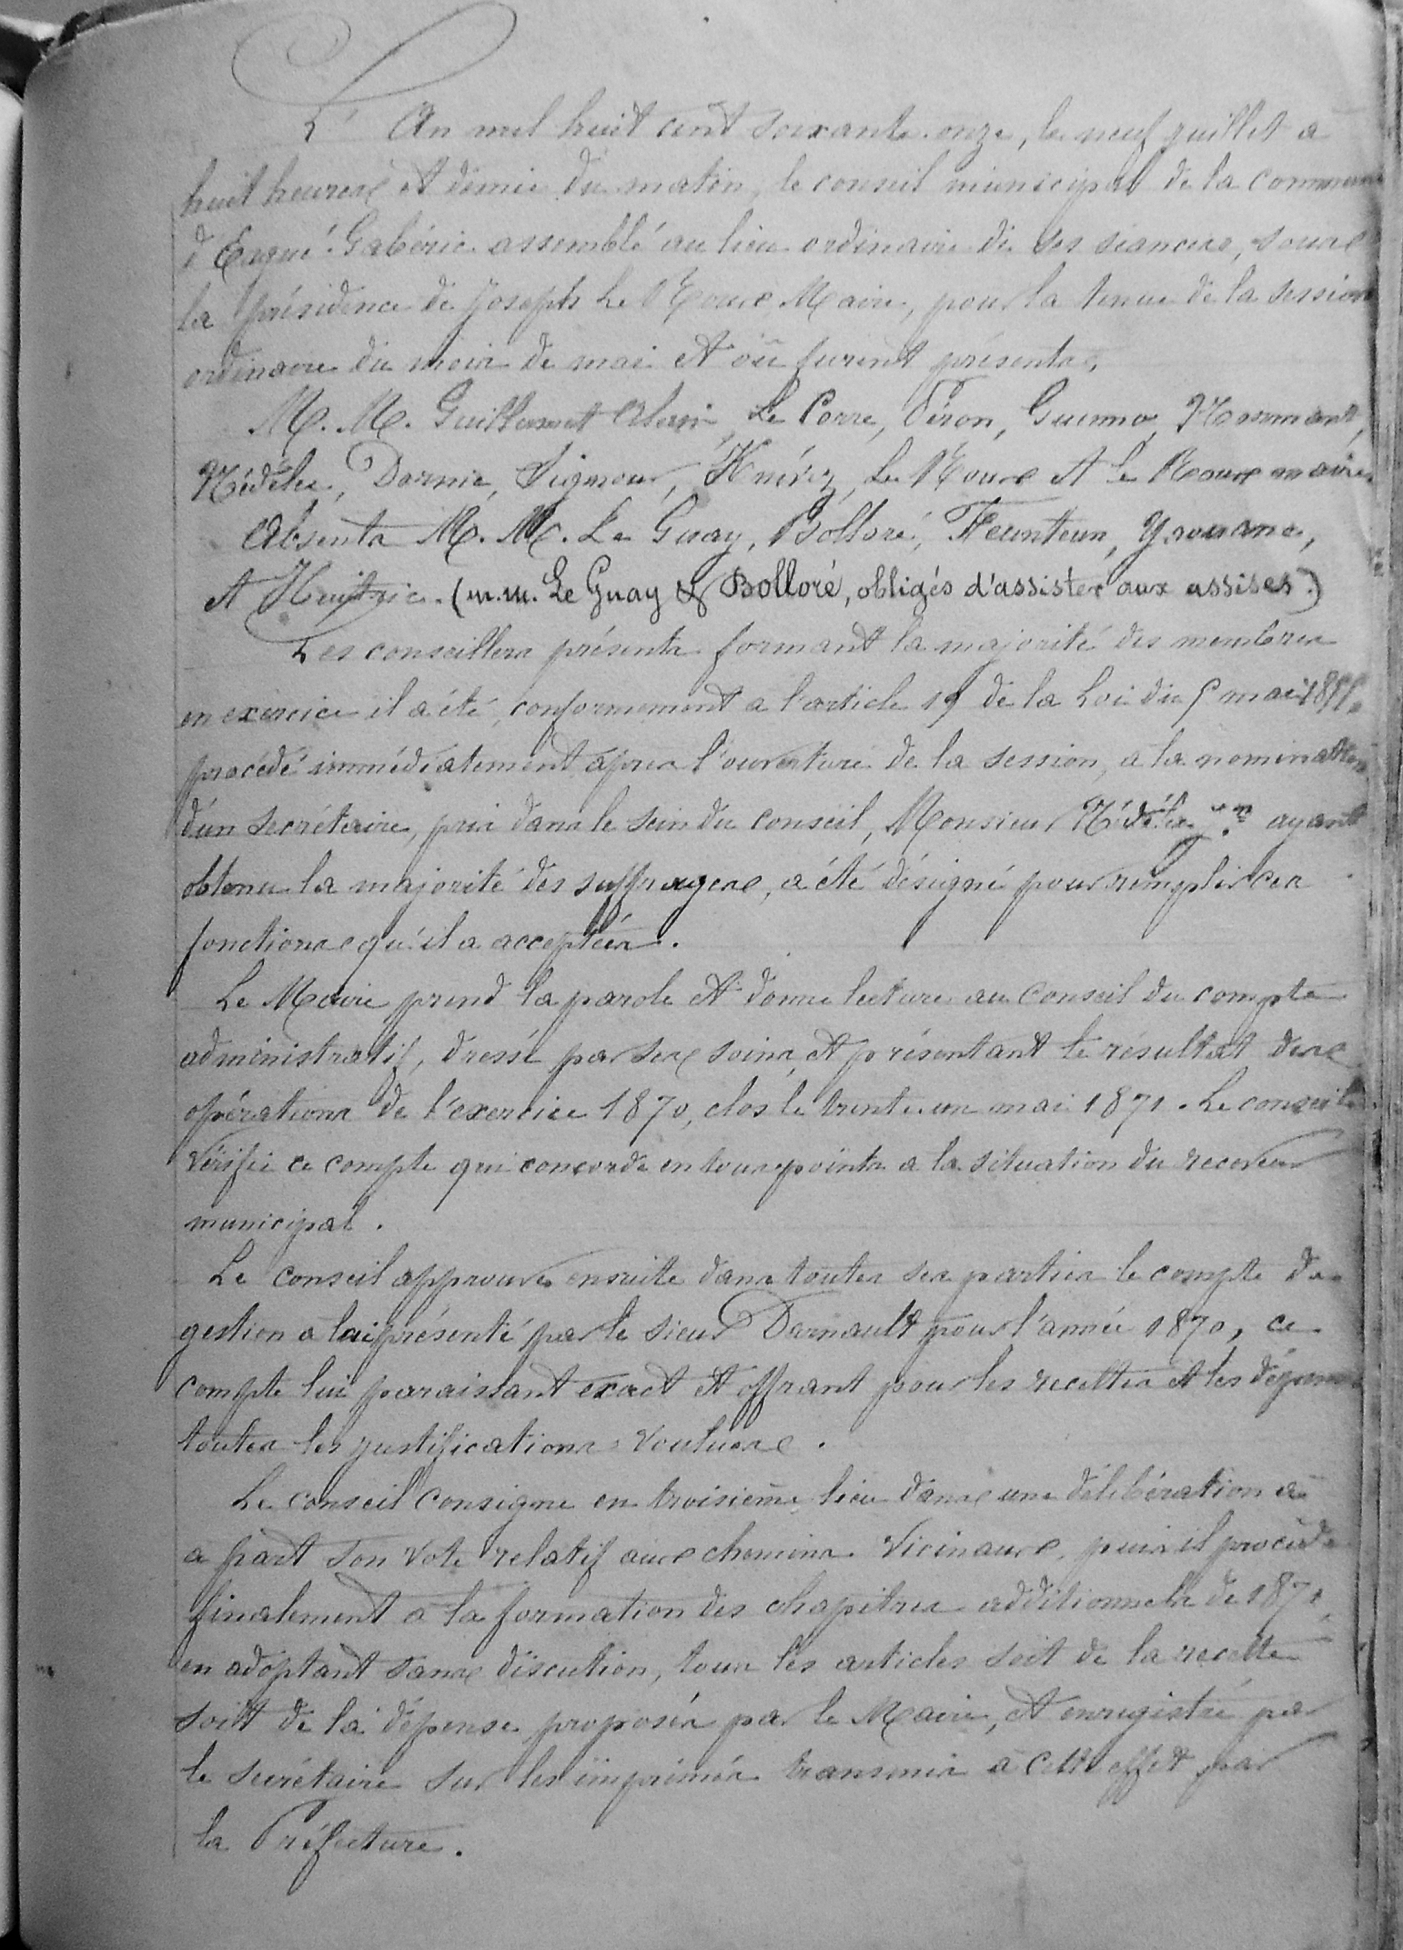 L'An mil huit cent soixante onze, le neuf juillet à
huit heures et demie du matin, le conseil municipal de la commune
d'Ergué-Gabéric assemblé au lieu ordinaire de ses séances, sous
la présidence de Joseph Le Roux Maire, pour la tenue de la session
ordinaire du mois de mai et où furent présents,
M. M. Guillermet Alain, Le Corre, Féron, Guenno,
Nédélec, Dornic, Signour, Le Roux et le Roux maire
Absents M. M. Le Guay, Bolloré, Feunteun, Yaouanc,
et Huitric. (m.m. Le Guay & Bolloré, obligés d'assister aux assises.)
Les conseillers présents formant la majorité des membres
en exercice il a été, conformement a l'article 19 de la Loi du 5 mai 1855,
procédé immédiatement après l'ouverture de la session, a la nomination
d'un secrétaire, pris dans le sein du conseil, Monsieur Nédélec ayant
obtenu la majorité des suffrages, a été désigné pour remplir ces
fonctions qu'il a acceptées.
Le Maire prend la parole et donne lecture au Conseil du compte
administratif, dressé par ses soins, et présentant le résultat des
opérations de l'exercice 1870, clos le trente un mai 1871. Le conseil
vérifie ce compte qui concorde en tous points a la situation du receveur
municipal.
Le conseil approuve ensuite dans toutes ses parties le compte de
gestion a lui présenté par le sieur Darnault pour l'année 1870, ce
compte lui paraissant exact et offrant pour les recettes et les dépenses
toutes les justifications voulues.
Le conseil consigne en troisième lieu dans une délibération à
a part son vote relatif aux chemins vicinaux, puis il procède
finalement à la formation des chapitres additionnels de 1871,
en adoptant sans discution, tous les articles soit de la recette
soit de la dépense proposés par le Maire, et enregistré par
le secrétaire sur les imprimés transmis à cette effet par
la Préfecture.